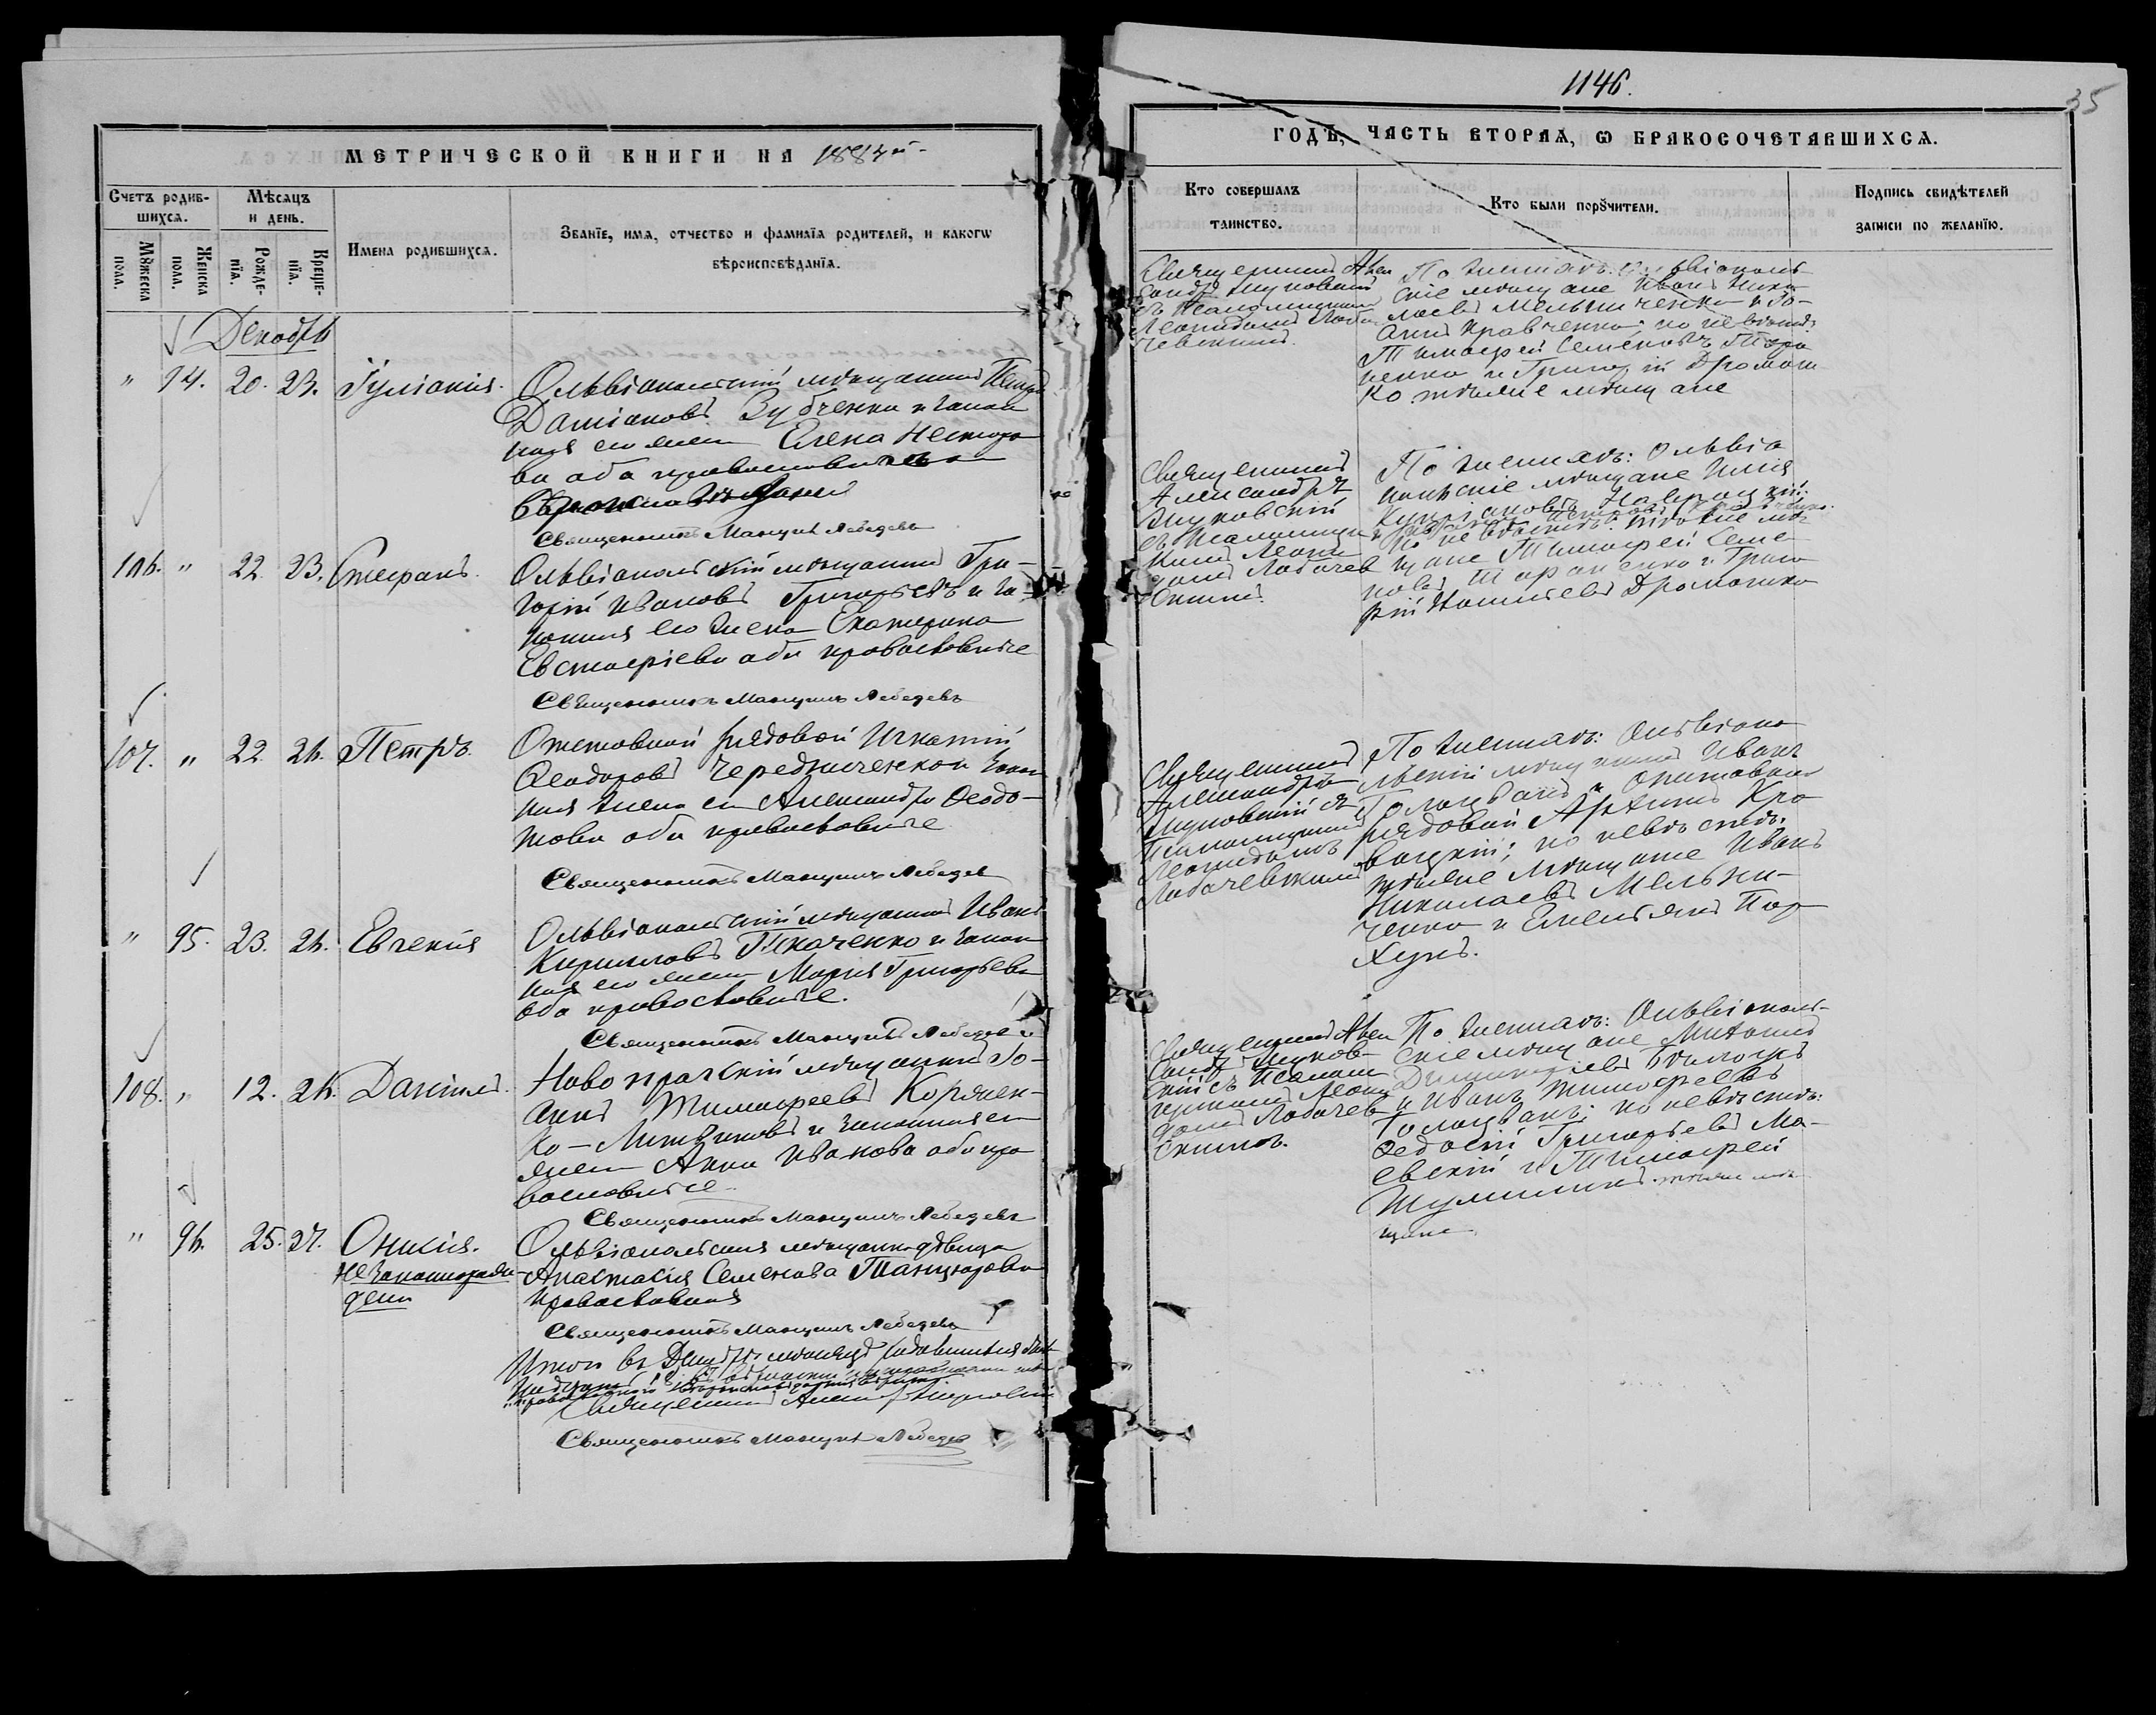 МЕТРИЧЕСКОЙ КНИГИ НА 1884й
Счетъ родившихся.
Мѣсяцъ и день.
Имена родившихся.
Званїе, имя, отчество и фамилїя родителей, и какогѡ
вѣроисповѣданїя.
Мꙋжеска пола.
Женска пола.
Рожденїя.
Крещенїя.
Декабрь
" 94. 20. 23. Іуліанія.
Ольвіопольскій мѣщанинъ Петръ
Даміановъ Зубченко и закон
ная его жена Елена Несторо
ва оба православнаго
вѣроисповѣданія
Священникъ Мануилъ Лебедевъ
106. " 22. 23. Стефанъ.
Ольвіопольскій мѣщанинъ Гри-
горій Ивановъ Григорьевъ и за-
конная его жена Екатерина
Евстафіева оба православные
Священникъ Мануилъ Лебедевъ
107. " 22. 26. Петръ.
Отставной рядовой Игнатій
Ѳеодоровъ Чередниченко и закон
ная жена его Александра Ѳеодо-
това оба православные
Священникъ Мануилъ Лебедевъ
" 95. 23. 26. Евгенія
Ольвіопольскій мѣщанинъ Иванъ
Кирилловъ Ткаченко и закон
ная его жена Марія Григорьева
оба православные.
Священникъ Мануилъ Лебедевъ
108. " 12. 26. Даніилъ.
Новопражскій мѣщанинъ Іо-
аннъ Тимофеевъ Корнѣен-
ко-Литвиновъ и законная его
жена Анна Иванова оба пра
вославные
Священникъ Мануилъ Лебедевъ
" 96. 25. 27. Онисія.
Незаконнорож
дена
Ольвіопольская мѣщанка дѣвица
Анастасія Семенова Танцюрова
православная
Священникъ Мануилъ Лебедевъ
Итого въ Декабрѣ мѣсяцѣ родившихся
Священникъ Александръ
Священникъ Мануилъ Лебедевъ
1146.
35
ГОДЪ, ЧАСТЬ ВТОРАЯ, Ѡ БРАКОСОЧЕТАВШИХСЯ.
Кто совершалъ
таинство.
Кто были порꙋчители.
Подпись свидѣтелей
записи по желанїю.
Священникъ Алек
сандръ
съ Псаломщикомъ
Леонидомъ Лоба
чевскимъ.
По женихѣ: Ольвіополь
скіе мѣщане Иванъ Нико
лаевъ Мельниченко и Іо-
аннъ Кравченко; по невѣстѣ:
Тимофей Семеновъ Тара
ненко и Григорій Дромашко
ко тѣже мѣщане
Священникъ
Александръ
съ Псаломщи
комъ Леони
домъ Лобачев
скимъ.
По женихѣ: Ольвіо
польскіе мѣщане Илія
Кипріановъ
по невѣстѣ: тѣже мѣ
щане Тимофей Семе
новъ Тараненко и Григо
рій Дромашко
Священникъ
Александръ
съ
Псаломщикомъ
Леонидомъ
Лобачевскимъ
По женихѣ: Ольвіопо
льскій мѣщанинъ Иванъ
Голоцванъ и отставной
рядовой Архипъ Кро
вацкій; по невѣстѣ:
тѣже мѣщане Иванъ
Николаевъ Мельни-
ченко и Емельянъ Пар
хунъ.
Священникъ Алек
сандръ
скій съ Псалом
щикомъ Леони
домъ Лобачев
скимъ.
По женихѣ: Ольвіополь-
скіе мѣщане Антоній
Димитріевъ
и Иванъ Тимофеевъ
Голоцванъ; по невѣстѣ:
Ѳедосій Григорьевъ Ма-
евскій и Тимофей
Шумилинъ тѣже мѣ
щане